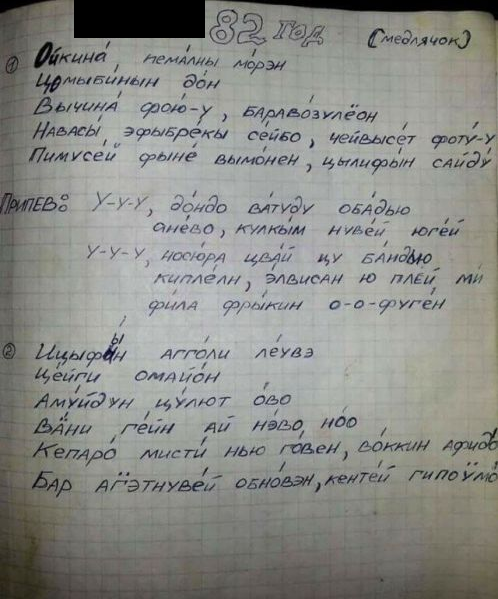 82 год (медлячок)
① Ойкина́, немалны мо́рэн
Цомыби́нын до́н
Вычина́ фою́-у, баравозулёон
Навасы́ эфыбре́кы се́йбо, чейвысе́т фоту́-у
Пимусе́й фыне́ вымо́нен, цылифы́н сайду́
Припев: У-у-у, до́ндо ва́туду оба́дью
ане́во, кулкы́м нуве́й юге́й
У-у-у, носю́ра цва́й цу ба́ндью
кипле́лн, э́лвисан ю пле́й ми́
фи́ла фры́кин о-о-фуге́н
② Ицыфы́н агго́ли ле́увэ
Це́йги омайо́н
Аму́йдун цу́лют о́во
Ва́ни ге́йн ай нэ́во, но́о
Кепаро́ мисти́ нью го́вен, во́ккин
Бар агэтнуве́й обно́вэн, кенте́й гипоумо́